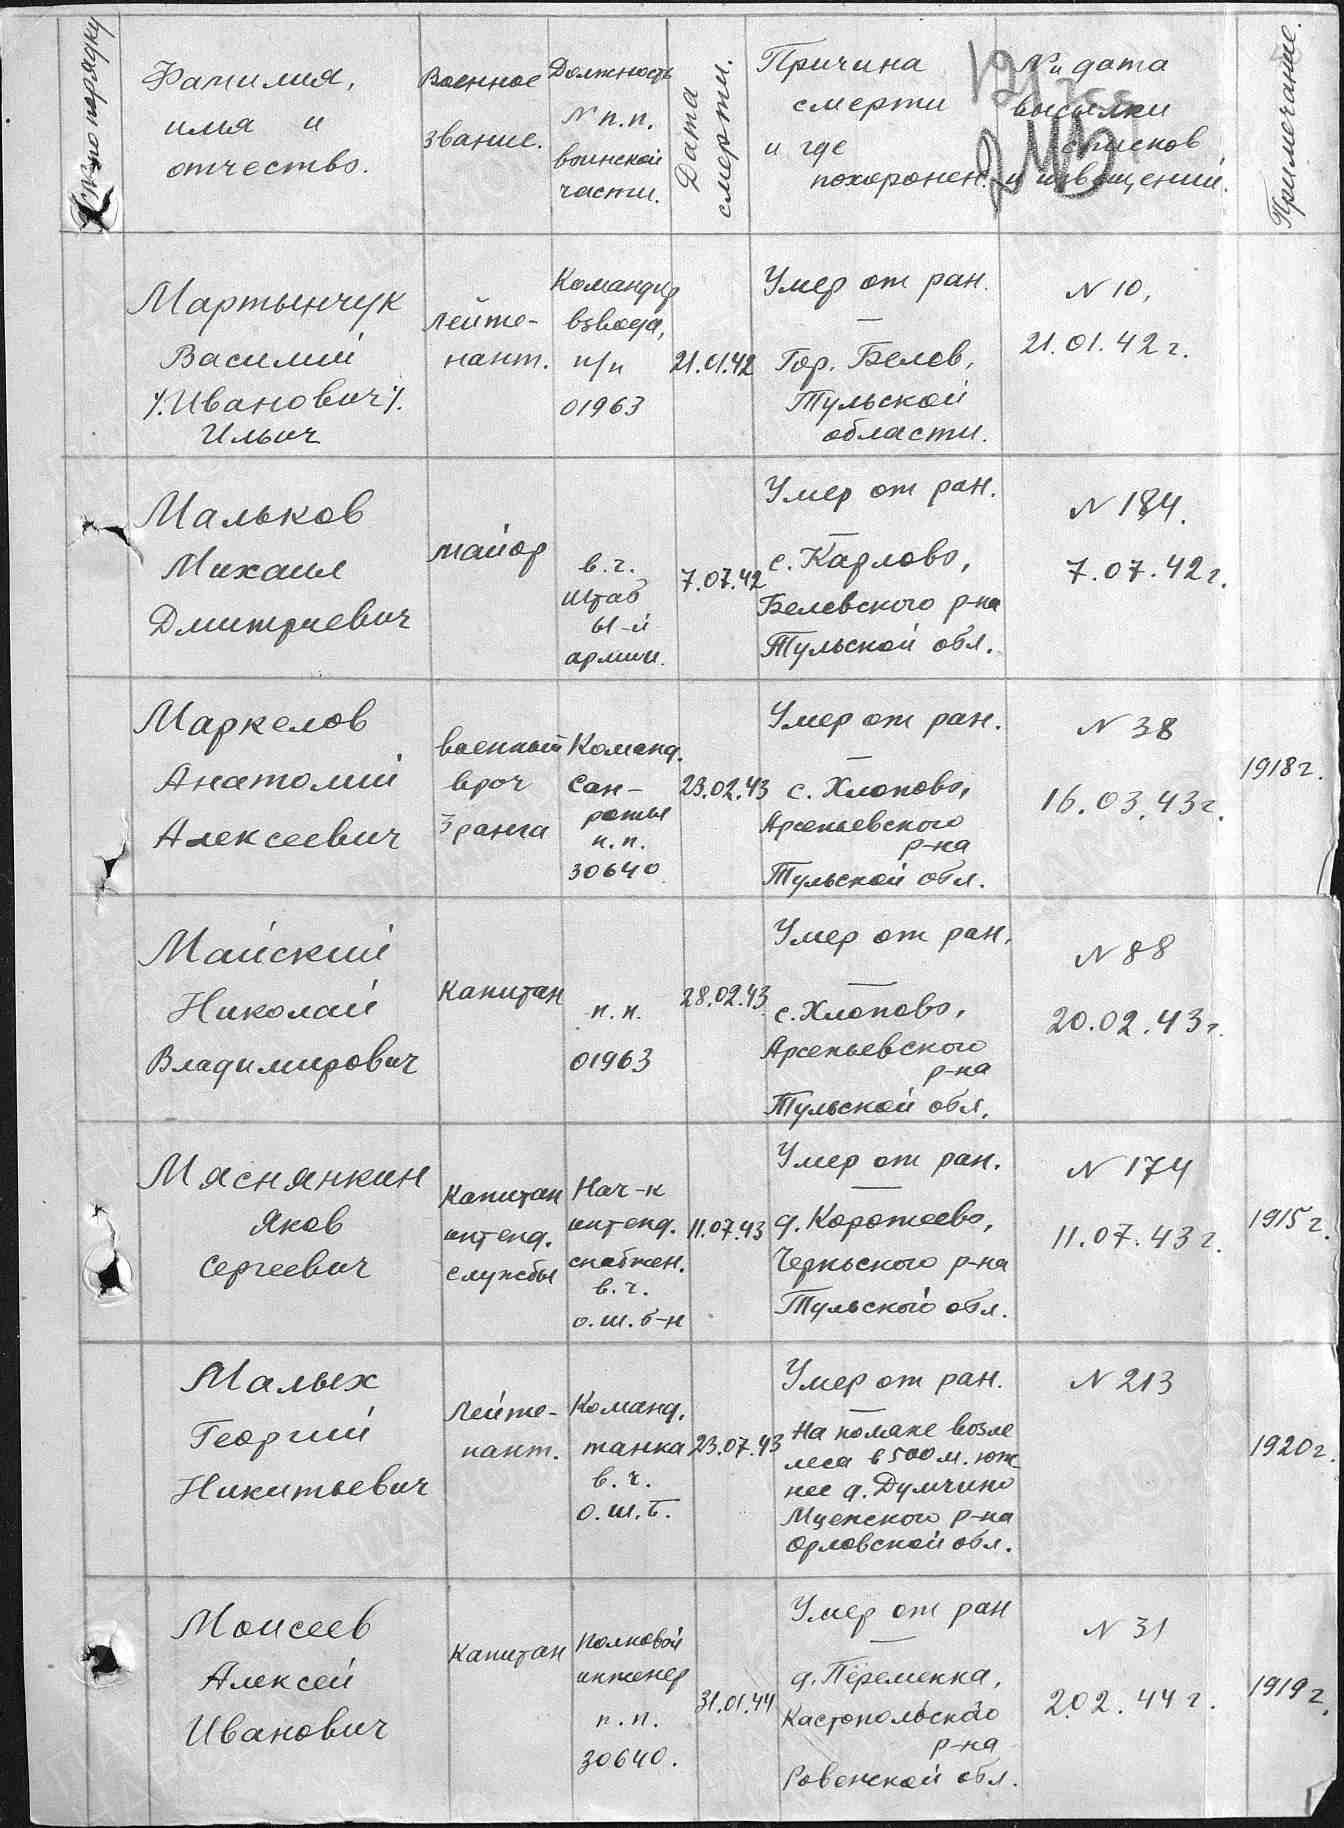 №№ по порядку
Фамилия,
имя и
отчество.
Военное
звание.
Должность
N п.п.
воинской
части.
Дата
смерти.
Причина
смерти
и где
похоронен.
N и дата
высылки
списков
и извещений.
Примечание.
Мартынчук
Василий
/.Иванович/.
Ильич
Лейте-
нант.
Командир
взвода,
п/п
01963
21.01.42
Умер от ран.
Гор. Белев,
Тульской
области.
N 10,
21.01.42 г.
Мальков
Михаил
Дмитриевич
майор
в.ч.
штаб
61-й
армии.
7.07.42
Умер от ран.
с. Карлово,
Белевского р-на
Тульской обл.
N 184.
7.07.42 г.
Маркелов
Анатолий
Алексеевич
военный
врач
3 ранга
Команд.
Сан-
роты
п.п.
30640
23.02.43
Умер от ран.
с. Хлопово,
Арсеньевского
р-на
Тульской обл.
N 38
16.03.43 г.
1918 г.
Майский
Николай
Владимирович
Капитан
п.п.
01963
28.02.43
Умер от ран.
с. Хлопово,
Арсеньевского
р-на
Тульской обл.
N 88
20.02.43 г.
Мяснянкин
Яков
Сергеевич
Капитан
интенд.
службы
Нач-к
интенд.
снабжен.
в.ч.
о.ш.б-н
11.07.43
Умер от ран.
д. Коротеево,
Черньского р-на
Тульской обл.
N 174
11.07.43 г.
1915 г.
Малых
Георгий
Никитьевич
Лейте-
нант.
Команд.
танка
в.ч.
о.ш.б.
23.07.43
Умер от ран.
На поляне возле
леса в 500 м. юж
нее д. Думчино
Мценского р-на
Орловской обл.
N 213
1920 г.
Моисеев
Алексей
Иванович
Капитан
полковой
инженер
п.п.
30640.
31.01.44
Умер от ран
д. Переменка,
Кастопольского
р-на
Ровенской обл.
N 31
2.02.44 г.
1919 г.